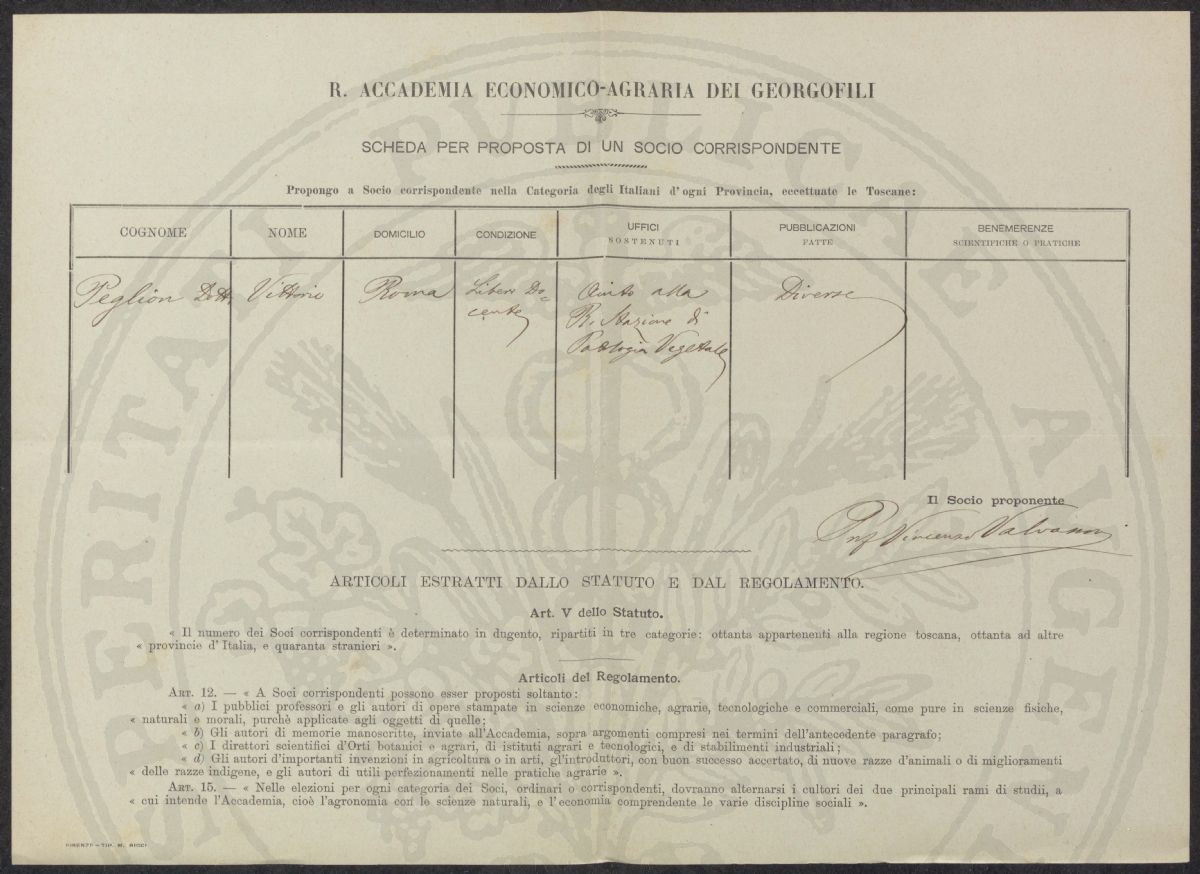 R. ACCADEMIA ECONOMICO-AGRARIA DEI GEORGOFILI
SCHEDA PER PROPOSTA DI UN SOCIO CORRISPONDENTE
Propongo a Socio corrispondente nella Categoria degli Italiani d'ogni Provincia, eccettuate le Toscane:
COGNOME NOME DOMICILIO CONDIZIONE UFFICI SOSTENUTI PUBBLICAZIONI FATTE BENEMERENZE SCIENTIFICHE O PRATICHE
Peglion Dott. Vittorio Roma Libero Do= Aiuto alla Diverse
cente R. Stazione di
Patologia Vegetale
Il Socio proponente
Prof Vincenzo Valvassori
ARTICOLI ESTRATTI DALLO STATUTO E DAL REGOLAMENTO.
Art. V dello Statuto.
« Il numero dei Soci corrispondenti è determinato in dugento, ripartiti in tre categorie: ottanta appartenenti alla regione toscana, ottanta ad altre
« provincie d'Italia, e quaranta stranieri ».
Articoli del Regolamento.
ART. 12. — « A Soci corrispondenti possono esser proposti soltanto:
« a) I pubblici professori e gli autori di opere stampate in scienze economiche, agrarie, tecnologiche e commerciali, come pure in scienze fisiche,
« naturali e morali, purchè applicate agli oggetti di quelle;
« b) Gli autori di memorie manoscritte, inviate all'Accademia, sopra argomenti compresi nei termini dell'antecedente paragrafo;
« c) I direttori scientifici d'Orti botanici e agrari, di istituti agrari e tecnologici, e di stabilimenti industriali;
« d) Gli autori d'importanti invenzioni in agricoltura o in arti, gl'introduttori, con buon successo accertato, di nuove razze d'animali o di miglioramenti
« delle razze indigene, e gli autori di utili perfezionamenti nelle pratiche agrarie ».
ART. 15. — « Nelle elezioni per ogni categoria dei Soci, ordinari o corrispondenti, dovranno alternarsi i cultori dei due principali rami di studii, a
« cui intende l'Accademia, cioè l'agronomia con le scienze naturali, e l'economia comprendente le varie discipline sociali ».
FIRENZE - TIP. M. RICCI